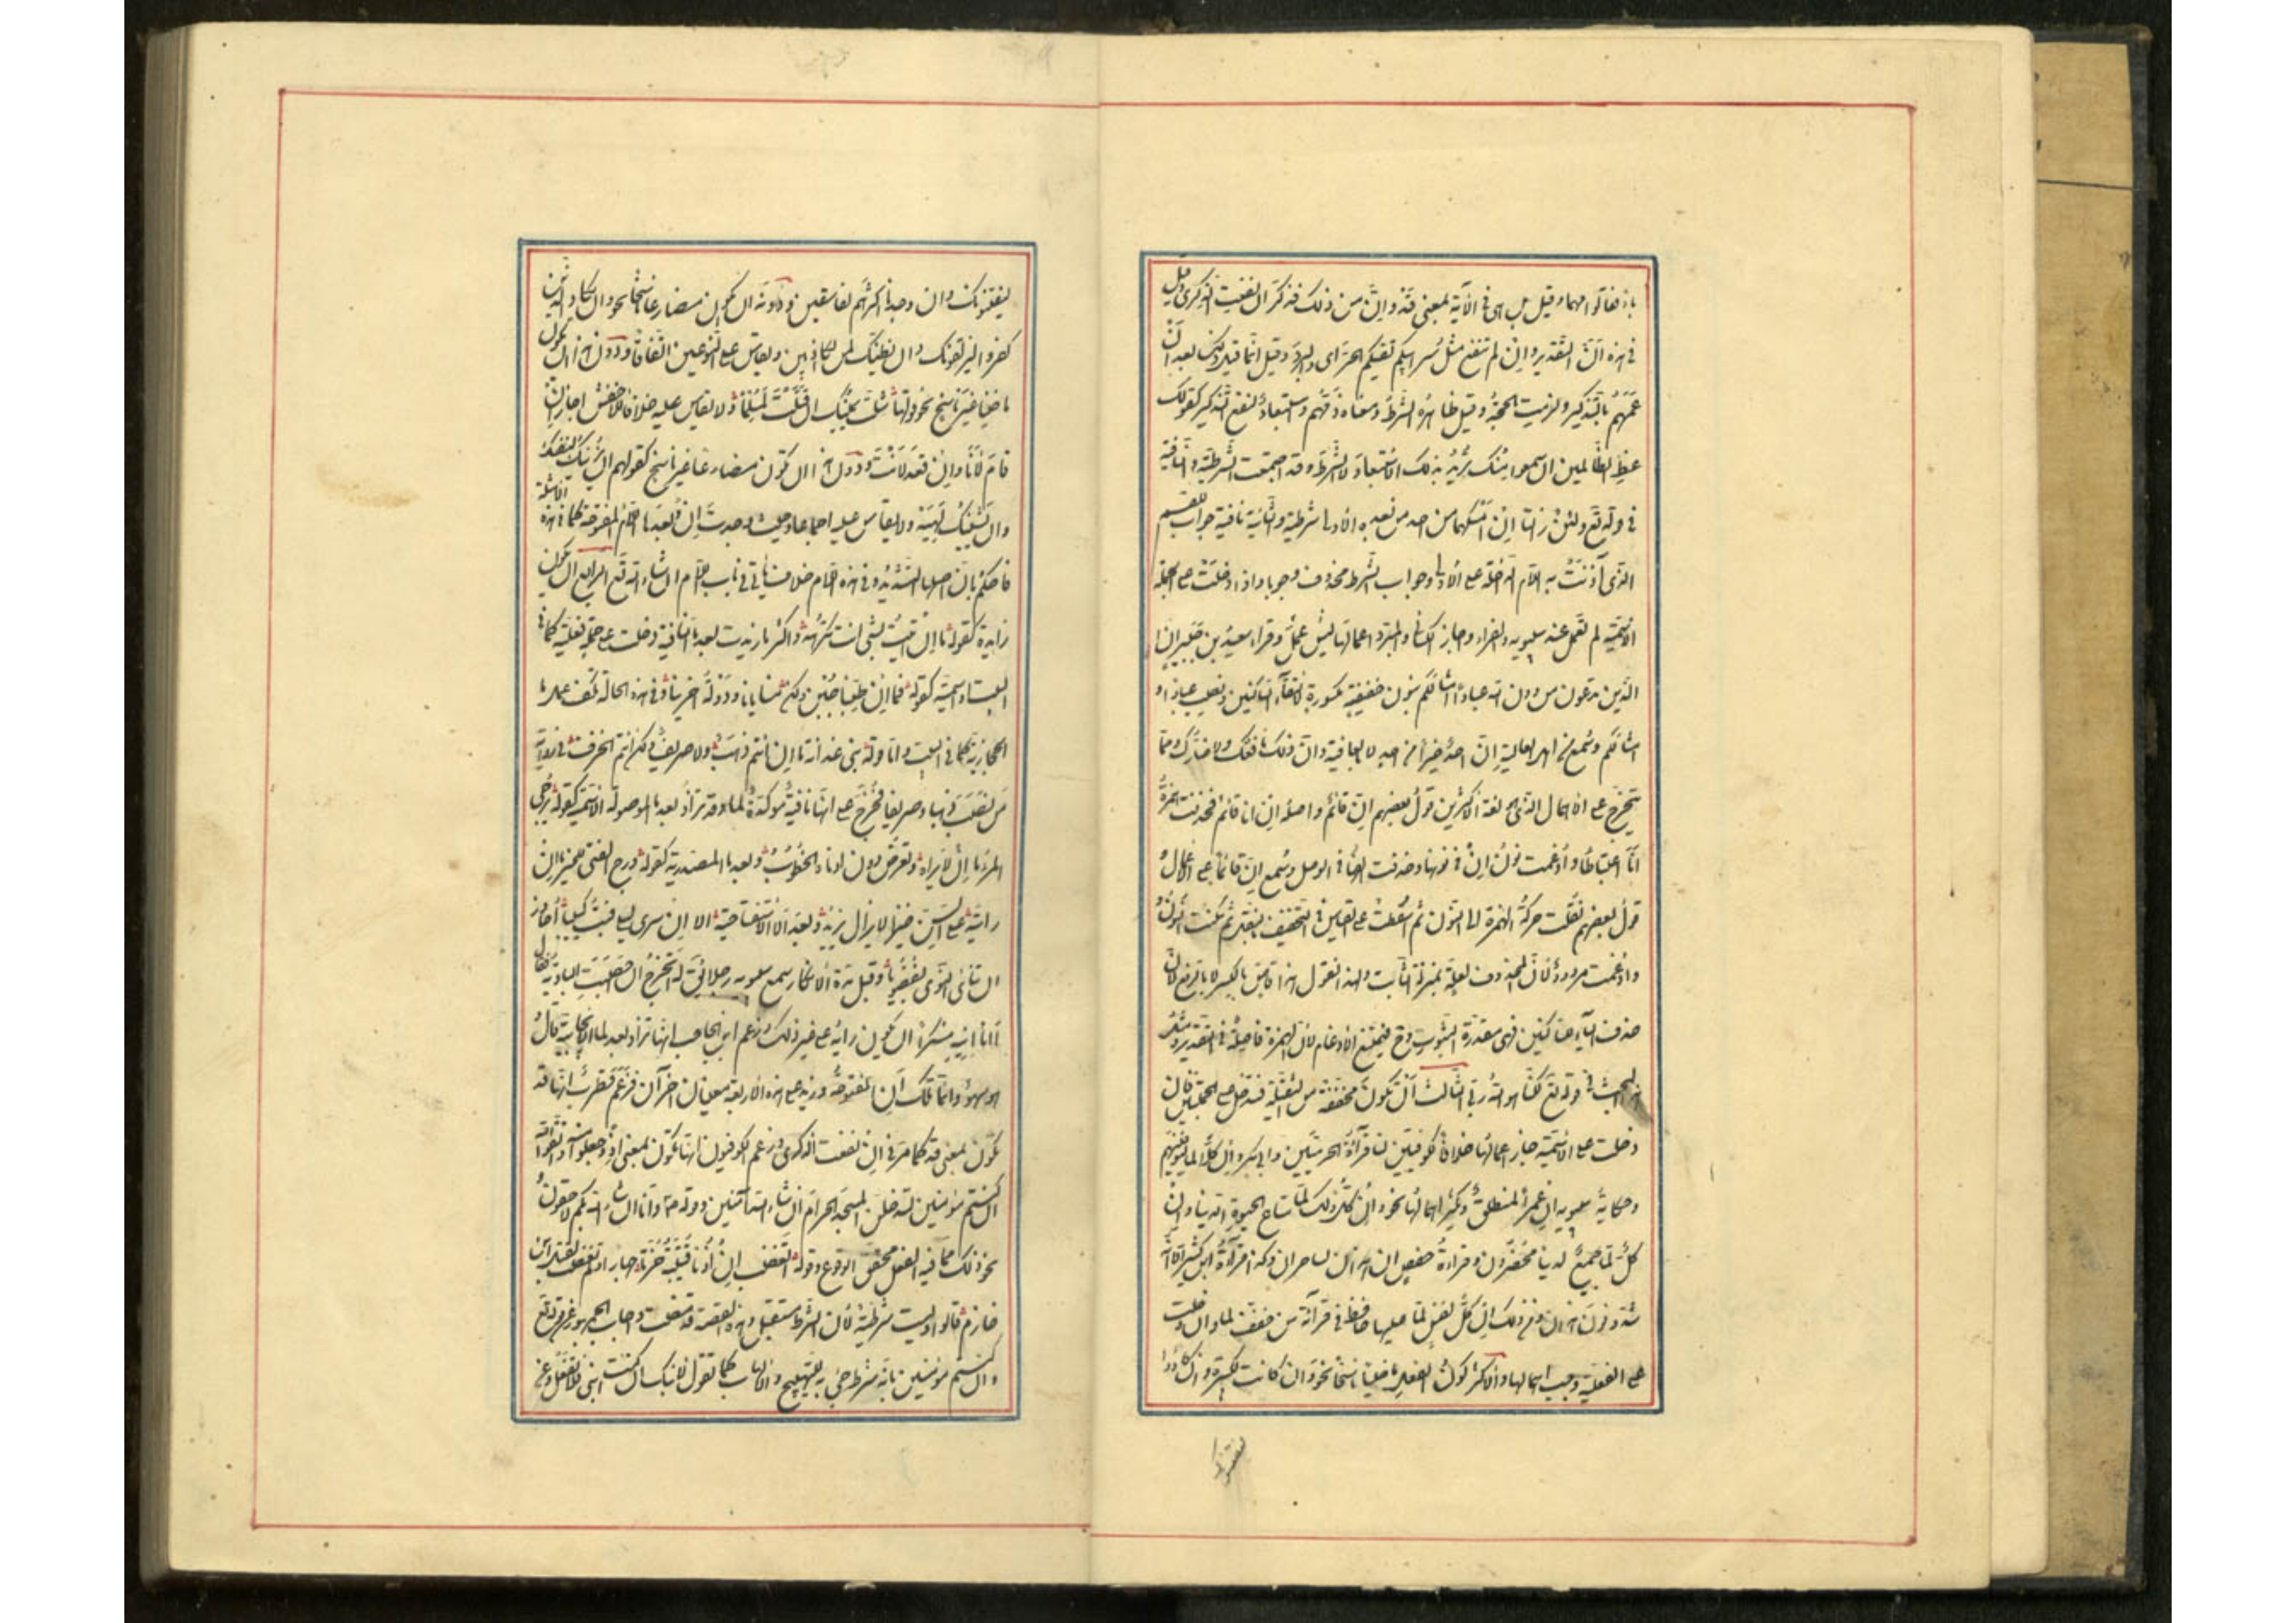 بان فقالوا مهما وقيل بل هى فى الآية بمعنى قد وان من ذلك فذكر ان نفعت الذكرى وقيل
فى هذه ان التقدير وان لم تنفع مثل سرابيل تقيكم الحر اى والبرد وقيل انما قيل ذلك بعد ان
عمهم بالتذكير ولزمت الحجة وقيل ظاهره الشرط ومعناه ذمهم واستبعاد لنفع التذكير كقولك
عظ الظالمين ان سمعوا منك تريد بذلك الاستبعاد لا الشرط وقد اجتمعت الشرطية والنافية
فى قوله تع ولئن زالتا ان امسكهما من احد من بعده الاولى شرطية والثانية نافية جواب للقسم
الذى آذنت به اللام الداخلة على الاولى وجواب الشرط محذوف وجوبا واذا دخلت على الجملة
الاسمية لم تعمل عند سيبويه والفراء واجاز الكسائى والمبرد اعمالها ليس عمل وقراء سعيد بن جبير ان
الذين تدعون من دون الله عبادا امثالكم بنون خفيفة مكسورة لالتقاء الساكنين ونصب عبادا و
امثالكم وسمع من اهل العالية ان احد خيرا من احد الا بالعافية وان ذلك نافعك ولا ضارك ومما
يتخرج على الاهمال الذى هو لغة الاكثرين قول بعضهم ان قائم واصله ان انا قائم فحذفت همزة
انا اعتباطا وادغمت نون ان فى نونها وحذفت الفها فى الوصل وسمع ان قائما على الاعمال و
قول بعضهم نقلت حركة الهمزة الى النون ثم اسقطت على القياس فى التخفيف بالنقل ثم سكنت النون
وادغمت مردود لان المحذوف لعلة بمنزلة الثابت ولهذا تقول هذا قاض بالكسر لا بالرفع لان
حذف الياء للساكنين فهى مقدرة الثبوت وح فيمتنع الادغام لان الهمزة فاصلة فى التقدير ومثل
هذا البحث فى قوله تع لكنا هو الله ربى الثالث ان تكون مخففة من الثقيلة فتدخل على الجملتين فان
دخلت على الاسمية جاز اعمالها خلافا للكوفيين لنا قرآءة الحرميين وابى بكر وان كلا لما ليوفينهم
وحكاية سيبويه ان عمرا لمنطلق ويكثر اهمالها نحو وان كل ذلك لما متاع الحيوة الدنيا وان
كل لما جميع لدينا محضرون وقراءة حفص ان هذان لساحران وكذا قرآءة ابن كثير الا انه
شدد نون هذان ومن ذلك ان كل نفس لما عليها حافظ فى قرآءة من خفف لما وان دخلت
على الفعلية وجب اهمالها والاكثر كون الفعل ماضيا ناسخا نحو وان كانت لكبيرة وان كادوا
ليفتنونك
ليفتنونك وان وجدنا اكثرهم لفاسقين ودونه ان يكون مضارعا ناسخا نحو وان يكاد الذين
كفروا ليزلقونك وان نظنك لمن الكاذبين ويقاس على النوعين اتفاقا ودون هذا ان يكون
ماضيا غير ناسخ نحو قولها شلت يمينك ان قتلت لمسلما ولا يقاس عليه خلافا للاخفش اجاز ان
قام لانا وان قعد لانت ودون هذا ان يكون مضارعا غير ناسخ كقولهم ان يزينك لنفسك
وان يشينك لهيه ولا يقاس عليه اجماعا وحيث وجدت ان وبعدها اللام المفتوحة كما فى هذه الامثلة
فاحكم بان اصلها التشديد وفى هذه اللام خلاف ياتى فى باب اللام ان شاء الله تع الرابع ان تكون
زايدة كقوله ما ان اتيت بشئ انت تكرهه واكثر ما زيدت بعد ما النافية دخلت على جملة فعلية كما فى
البيت او اسمية كقوله فما ان طبنا جبن ولكن منايانا ودولة آخرينا وفى هذه الحالة تكف عمل ما
الحجازية كما فى البيت واما قوله بنى غدانة ما ان انتم ذهب ولا صريف ولكن انتم الخزف فى رواية
من نصب ذهبا وصريفا فخرج على انها نافية مؤكدة لما وقد تزاد بعد ما الموصولة الاسمية كقوله يرجى
المرء ما ان لا يراه وتعرض دون ادناه الخطوب وبعد ما المصدرية كقوله ورج الفتى للخير ما ان
رايته على السن خيرا لا يزال يزيد وبعد الا الاستفتاحية الا ان سرى ليلى فبت كئيبا احاذر
ان تنأى النوى بغضوبا وقبل مدة الانكار سمع سيبويه رجلا يق له اتخرج ان اخصبت البادية فقال
اانا انيه منكرا ان يكون رايه على غير ذلك وزعم ابن الحاجب انها تزاد بعد لما الايجابية قال
هو سهو وانما تلك ان المفتوحة وزيد على هذه الاربعة معنيان اخران فزعم قطرب انها قد
تكون بمعنى قد كما مر فى ان نفعت الذكرى وزعم الكوفيون انها تكون بمعنى اذ وجعلوا منه واتقوا الله
ان كنتم مؤمنين لتدخلن المسجد الحرام ان شاء الله آمنين وقوله ص وانا ان شاء الله بكم لاحقون و
نحو ذلك مما فيه الفعل محقق الوقوع وقوله اتغضب ان اذنا قتيبة حزتا جهارا ولم تغضب لقتل ابن
خازم قالوا وليست شرطية لان الشرط مستقبل وهذه القصة قد مضت واجاب الجمهور عن قوله تع
ان كنتم مؤمنين بانه شرط جئ به للتهييج والالهاب كما تقول لابنك ان كنت ابنى فلا تفعل وعن